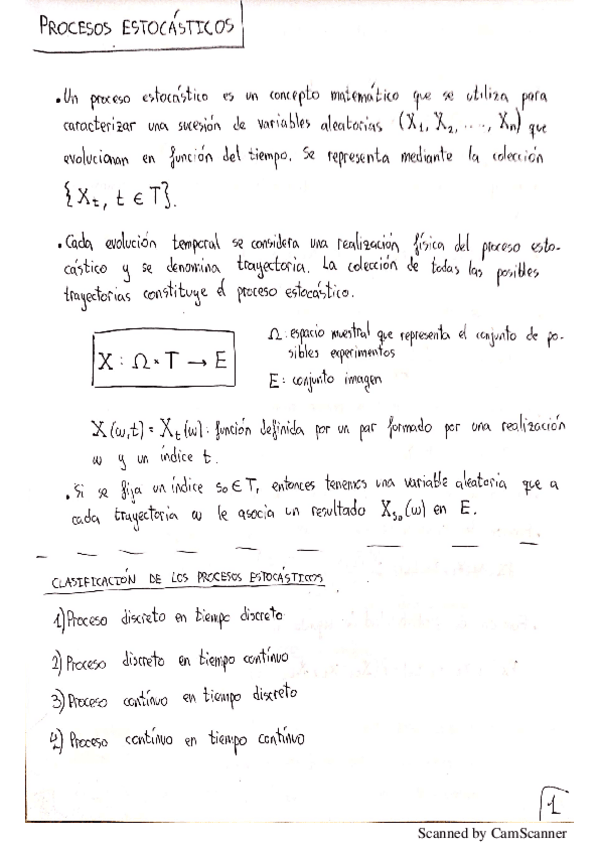 PROCESOS ESTOCÁSTICOS
• Un proceso estocástico es un concepto matemático que se utiliza para
caracterizar una sucesión de variables aleatorias (X₁, X₂, ...., Xₙ) que
evolucionan en función del tiempo. Se representa mediante la colección
{Xₜ, t ∈ T}.
• Cada evolución temporal se considera una realización física del proceso esto-
cástico y se denomina trayectoria. La colección de todas las posibles
trayectorias constituye el proceso estocástico.
X : Ω × T → E
Ω: espacio muestral que representa el conjunto de po-
sibles experimentos
E: conjunto imagen
X(ω,t) = Xₜ(ω): función definida por un par formado por una realización
ω y un índice t.
• Si se fija un índice s₀ ∈ T, entonces tenemos una variable aleatoria que a
cada trayectoria ω le asocia un resultado Xₛ₀(ω) en E.
CLASIFICACIÓN DE LOS PROCESOS ESTOCÁSTICOS
1) Proceso discreto en tiempo discreto
2) Proceso discreto en tiempo contínuo
3) Proceso contínuo en tiempo discreto
4) Proceso contínuo en tiempo contínuo
1
Scanned by CamScanner